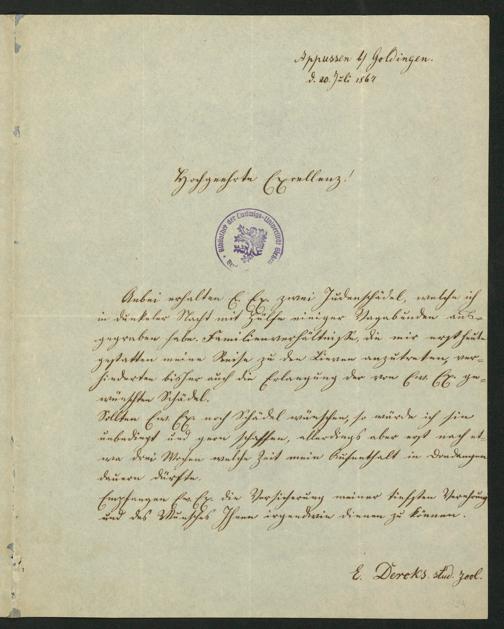 Appussen b/ Goldingen.
d. 20. Juli 1867
Hochgeehrte Excellenz!
Bibliothek der Ludwigs-Universität Giessen
Anbei erhalten E. Ex. zwei Judenschädel, welche ich
in dunkeler Nacht mit Hülfe einiger Vagabunden aus-
gegraben habe. Familienverhältnisse, die mir erst heute
gestatten meine Reise zu den Liven anzutreten, ver-
hinderten bisher auch die Erlangung der von Ew. Ex. ge-
wünschten Schädel.
Sollten Ew. Ex. noch Schädel wünschen, so würde ich sie
unbedingt und gern schaffen, allerdings aber erst nach et-
wa drei Wochen welche Zeit mein Aufenthalt in Dondangen
dauern dürfte.
Empfangen Ew. Ex. die Versicherung meiner tiefsten Verehrung
und des Wunsches Ihnen irgendwie dienen zu können.
E. Dercks. stud. zool.